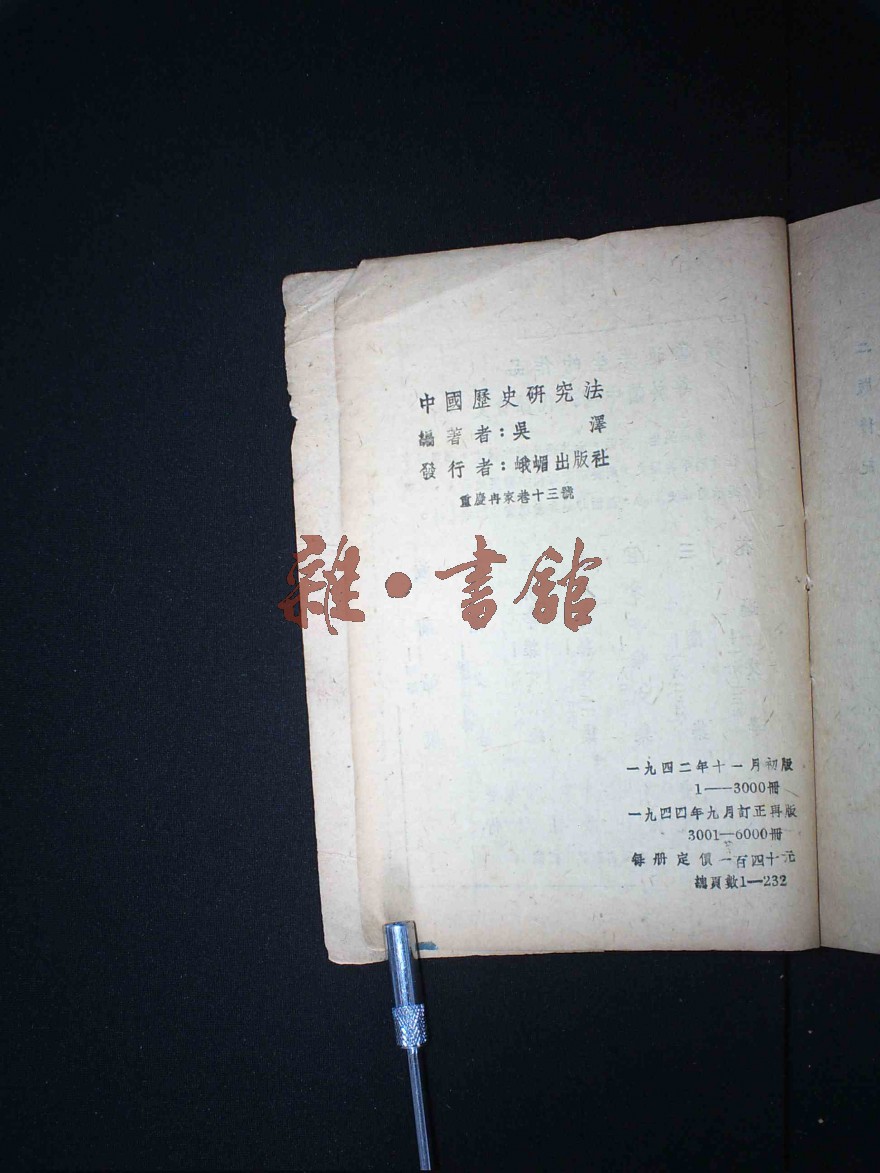 中國歷史研究法
編著者：吳澤
發行者：峨嵋出版社
重慶冉家巷十三號
雜·書館
一九四二年十一月初版
1——3000冊
一九四四年九月訂正再版
3001—6000冊
每册定價一百四十元
總頁數1—232